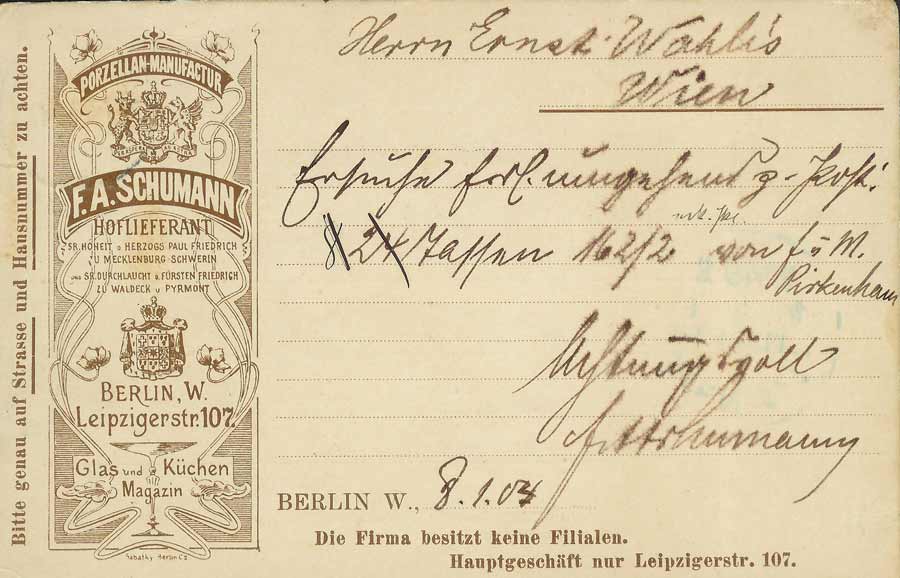 Bitte genau auf Strasse und Hausnummer zu achten.
PORZELLAN-MANUFACTUR
F. A. SCHUMANN
HOFLIEFERANT
SR. HOHEIT D HERZOGS PAUL FRIEDRICH
ZU MECKLENBURG SCHWERIN
UND SR. DURCHLAUCHT D FÜRSTEN FRIEDRICH
ZU WALDECK U PYRMONT
BERLIN, W.
Leipzigerstr. 107.
Glas und Küchen
Magazin
Herrn Ernst Wahliss
Wien
Ersuche frdl. umgehend p. Post.
8 24 Tassen 162/2 von F u M.
Pirkenham
Achtungsvoll
FASchumann
BERLIN W., 8.1.04
Die Firma besitzt keine Filialen.
Hauptgeschäft nur Leipzigerstr. 107.